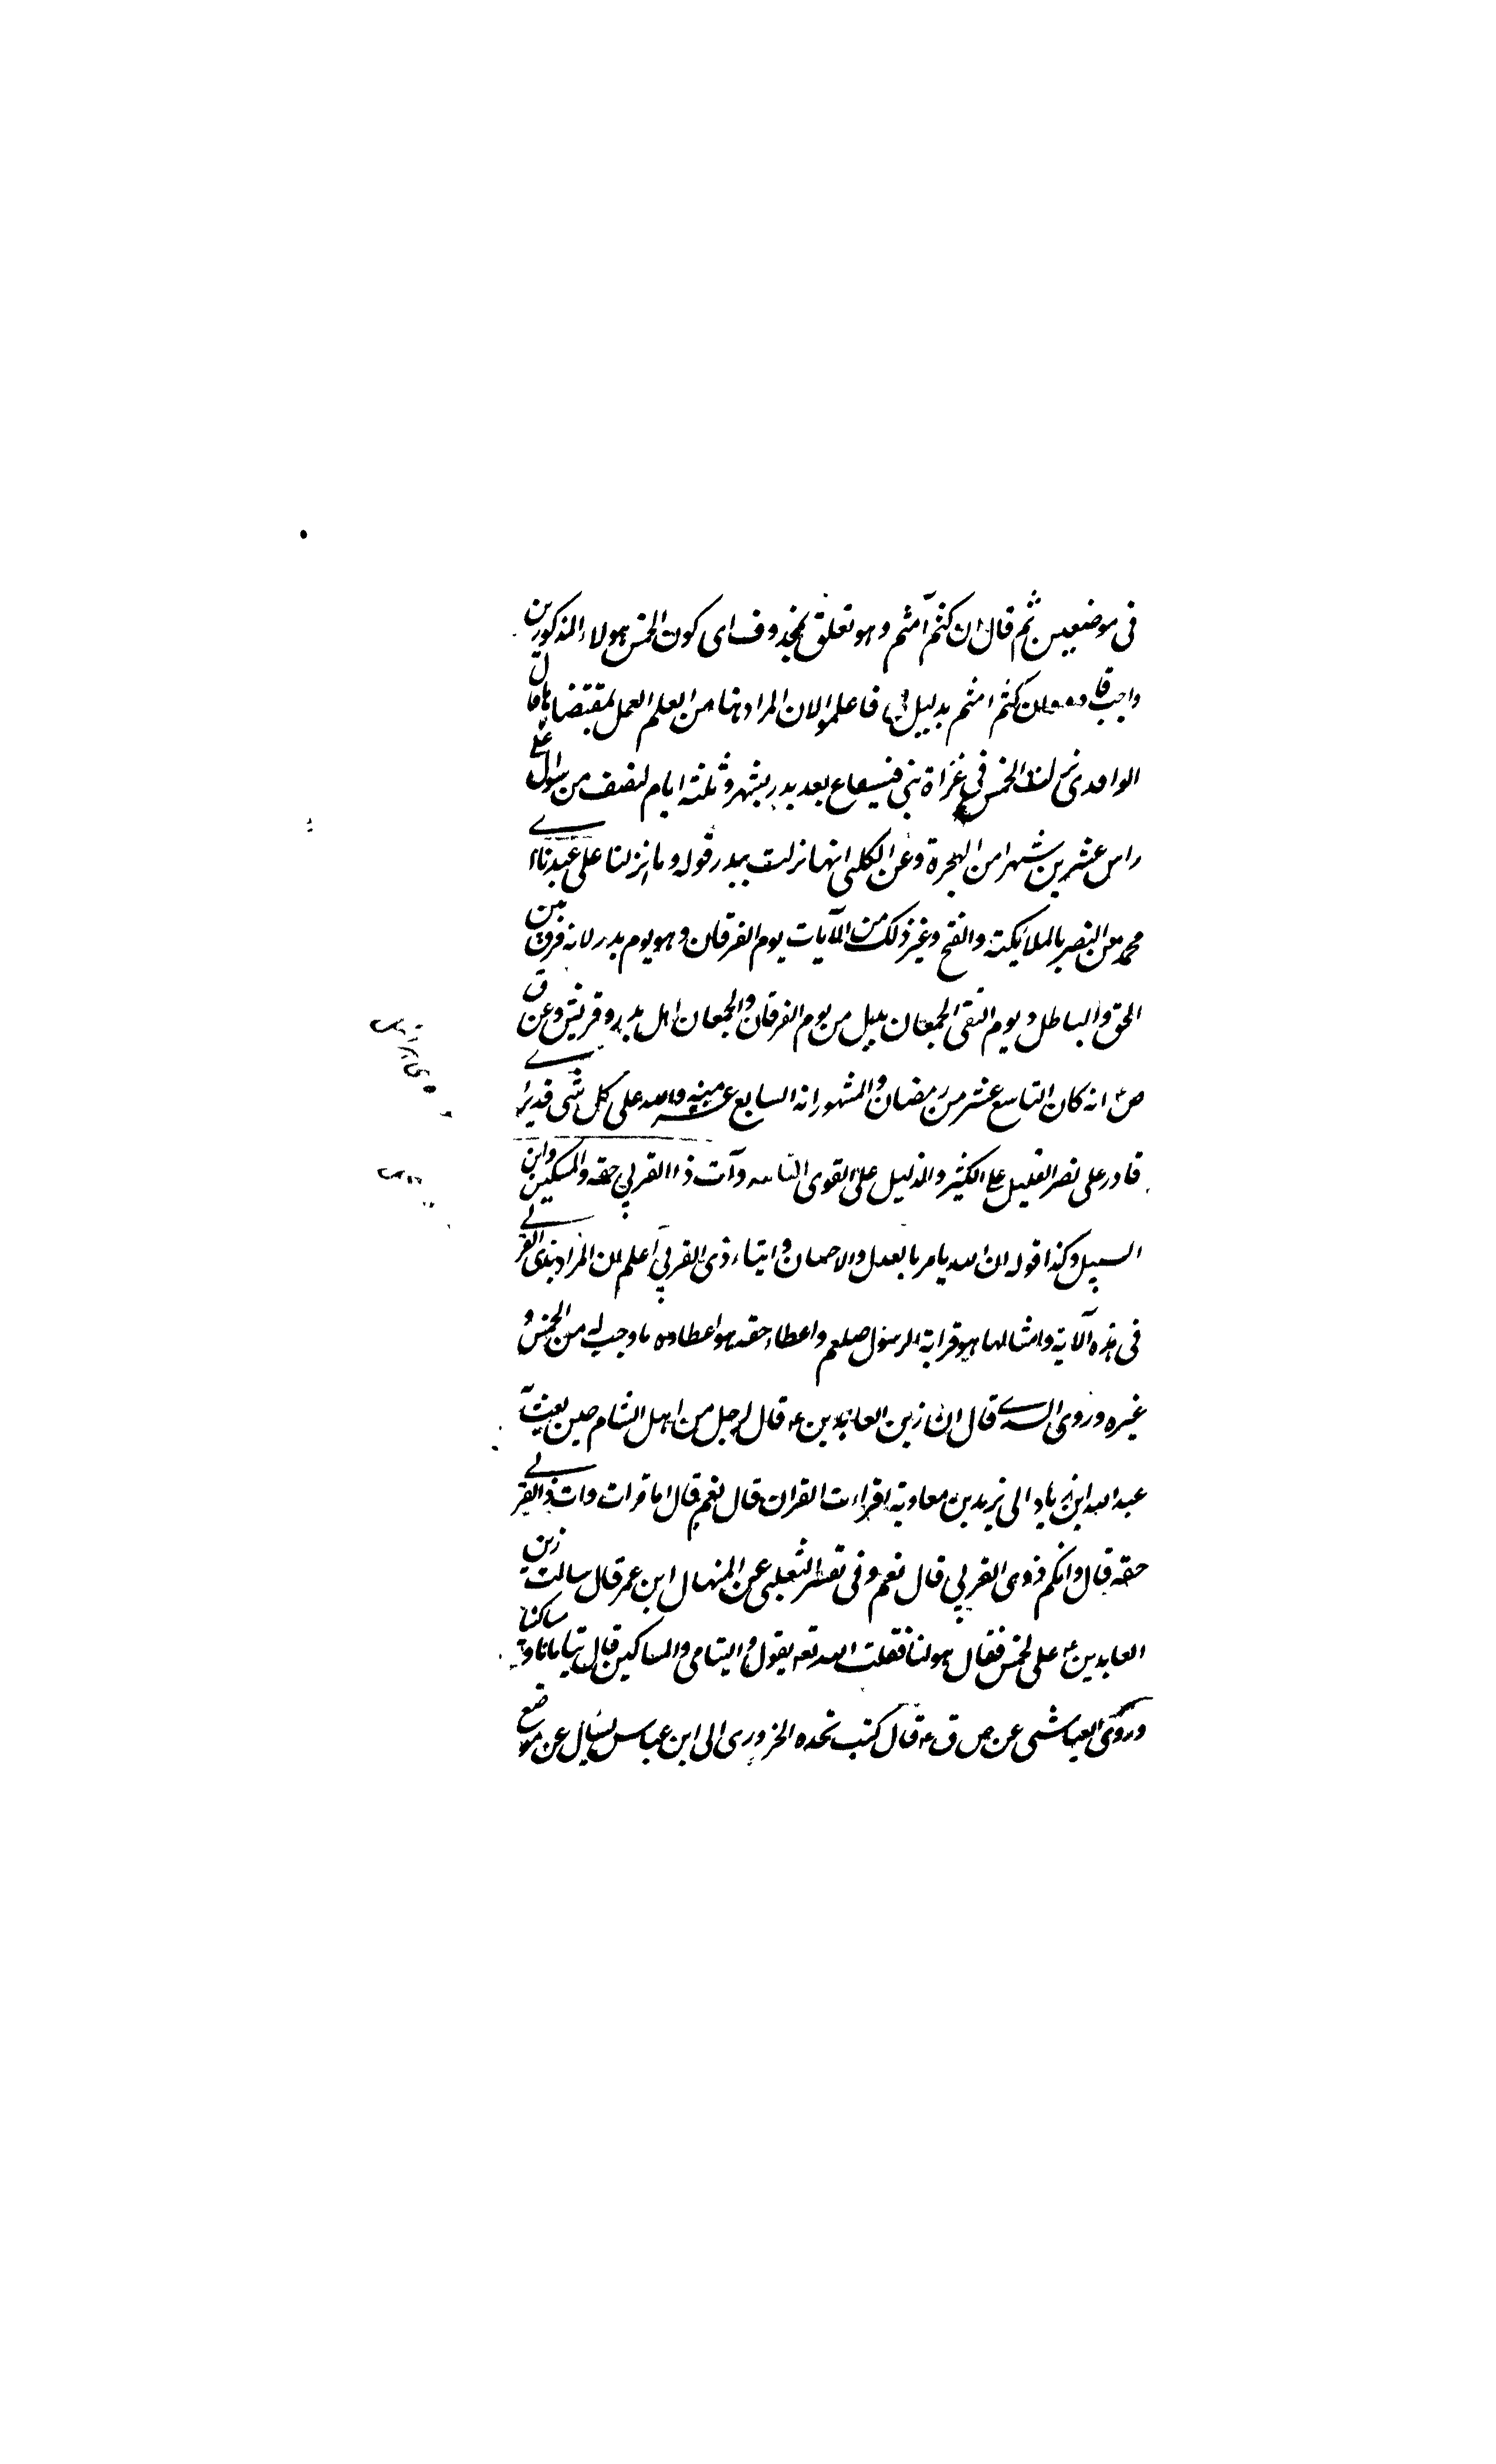 فى موضعين ثم قال ان كنتم آمنتم وهو تعلق بمحذوف اى كون الخمس لهولاء المذكورين
واجب ان كنتم امنتم بدليل فاعلموا لان المراد بها من العلم العمل بمقتضاها قال
الواحدى نزلت الخمس فى غزاة بنى قينقاع بعد بدر بشهر وثلثة ايام لنصف من شوال على
راس عشرين شهرا من الهجرة وعن الكلبى انها نزلت ببدر قوله وما انزلنا على عبدنا اى
محمد من النصر بالملائكة والفتح وغير ذلك من الآيات يوم الفرقان وهو يوم بدر لانه فرق بين
الحق والباطل ويوم التقى الجمعان بدل من يوم الفرقان والجمعان اهل بدر وقريش وعن ق
ص انه كان التاسع عشر من رمضان والمشهور انه السابع عشر منه والله على كل شى قدير اى
قادر على نصر القليل على الكثير والذليل على القوى وآت ذا القربى حقه والمسكين وابن
السبيل وكذا قوله ان الله يامر بالعدل والاحسان وايتاء ذى القربى اعلم ان المراد بذى القربى
فى هذه الآية وامثالها هو قرابة الرسول صلعم واعطاء حقه هو اعطاوه ما وجب له من الخمس و
غيره وروى السدى قال ان زين العابدين ع قال لرجل من اهل الشام حين بعث به
عبد الله ابن زياد الى يزيد بن معاوية اقراءت القران قال نعم قال اما قرات وات ذا القربى
حقه قال وانكم ذوى القربى قال نعم وفى تفسير الثعلبى عن المنهال ابن عمر قال سالت زين
العابدين ع على الخمس فقال هو لنا فقلت الله تعه يقول واليتامى والمساكين قال يتامانا ومساكننا
وروى العياشى عن ص ق ع قال كتب نجده الحرورى الى ابن عباس يسال عن موضع